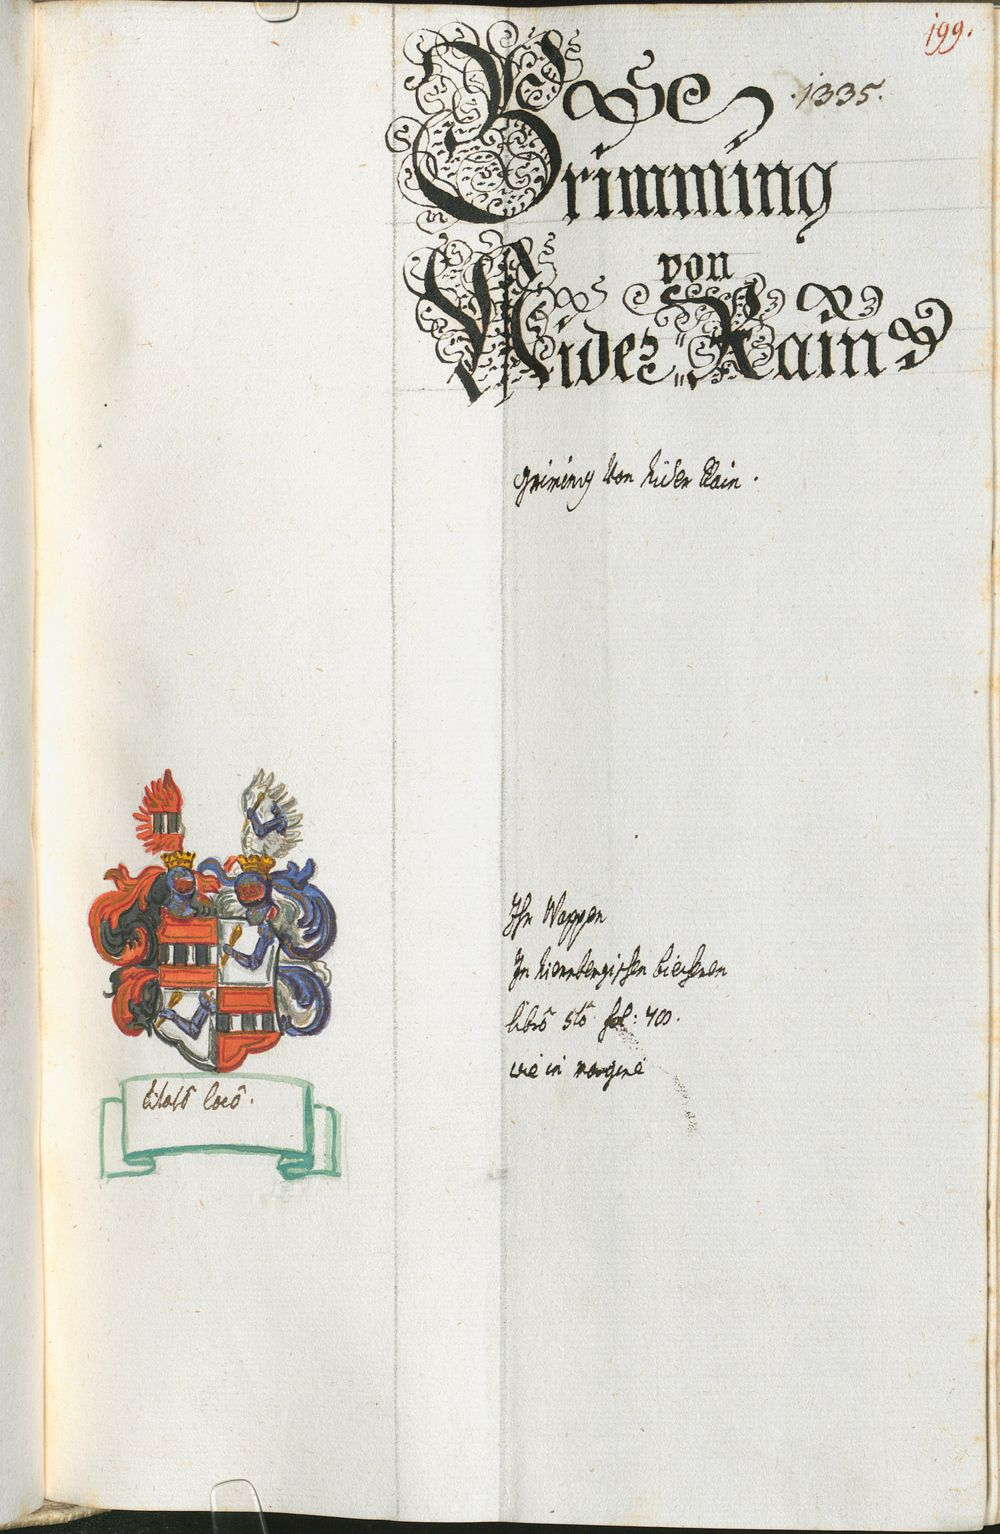 199.
1335.
Grimming
von
Nider Rain
Griming von Nider Rain.
Ihr Wappen
In Niernbergischen biechern
libro 5to fol: 700.
wie in margine
Citato loco.